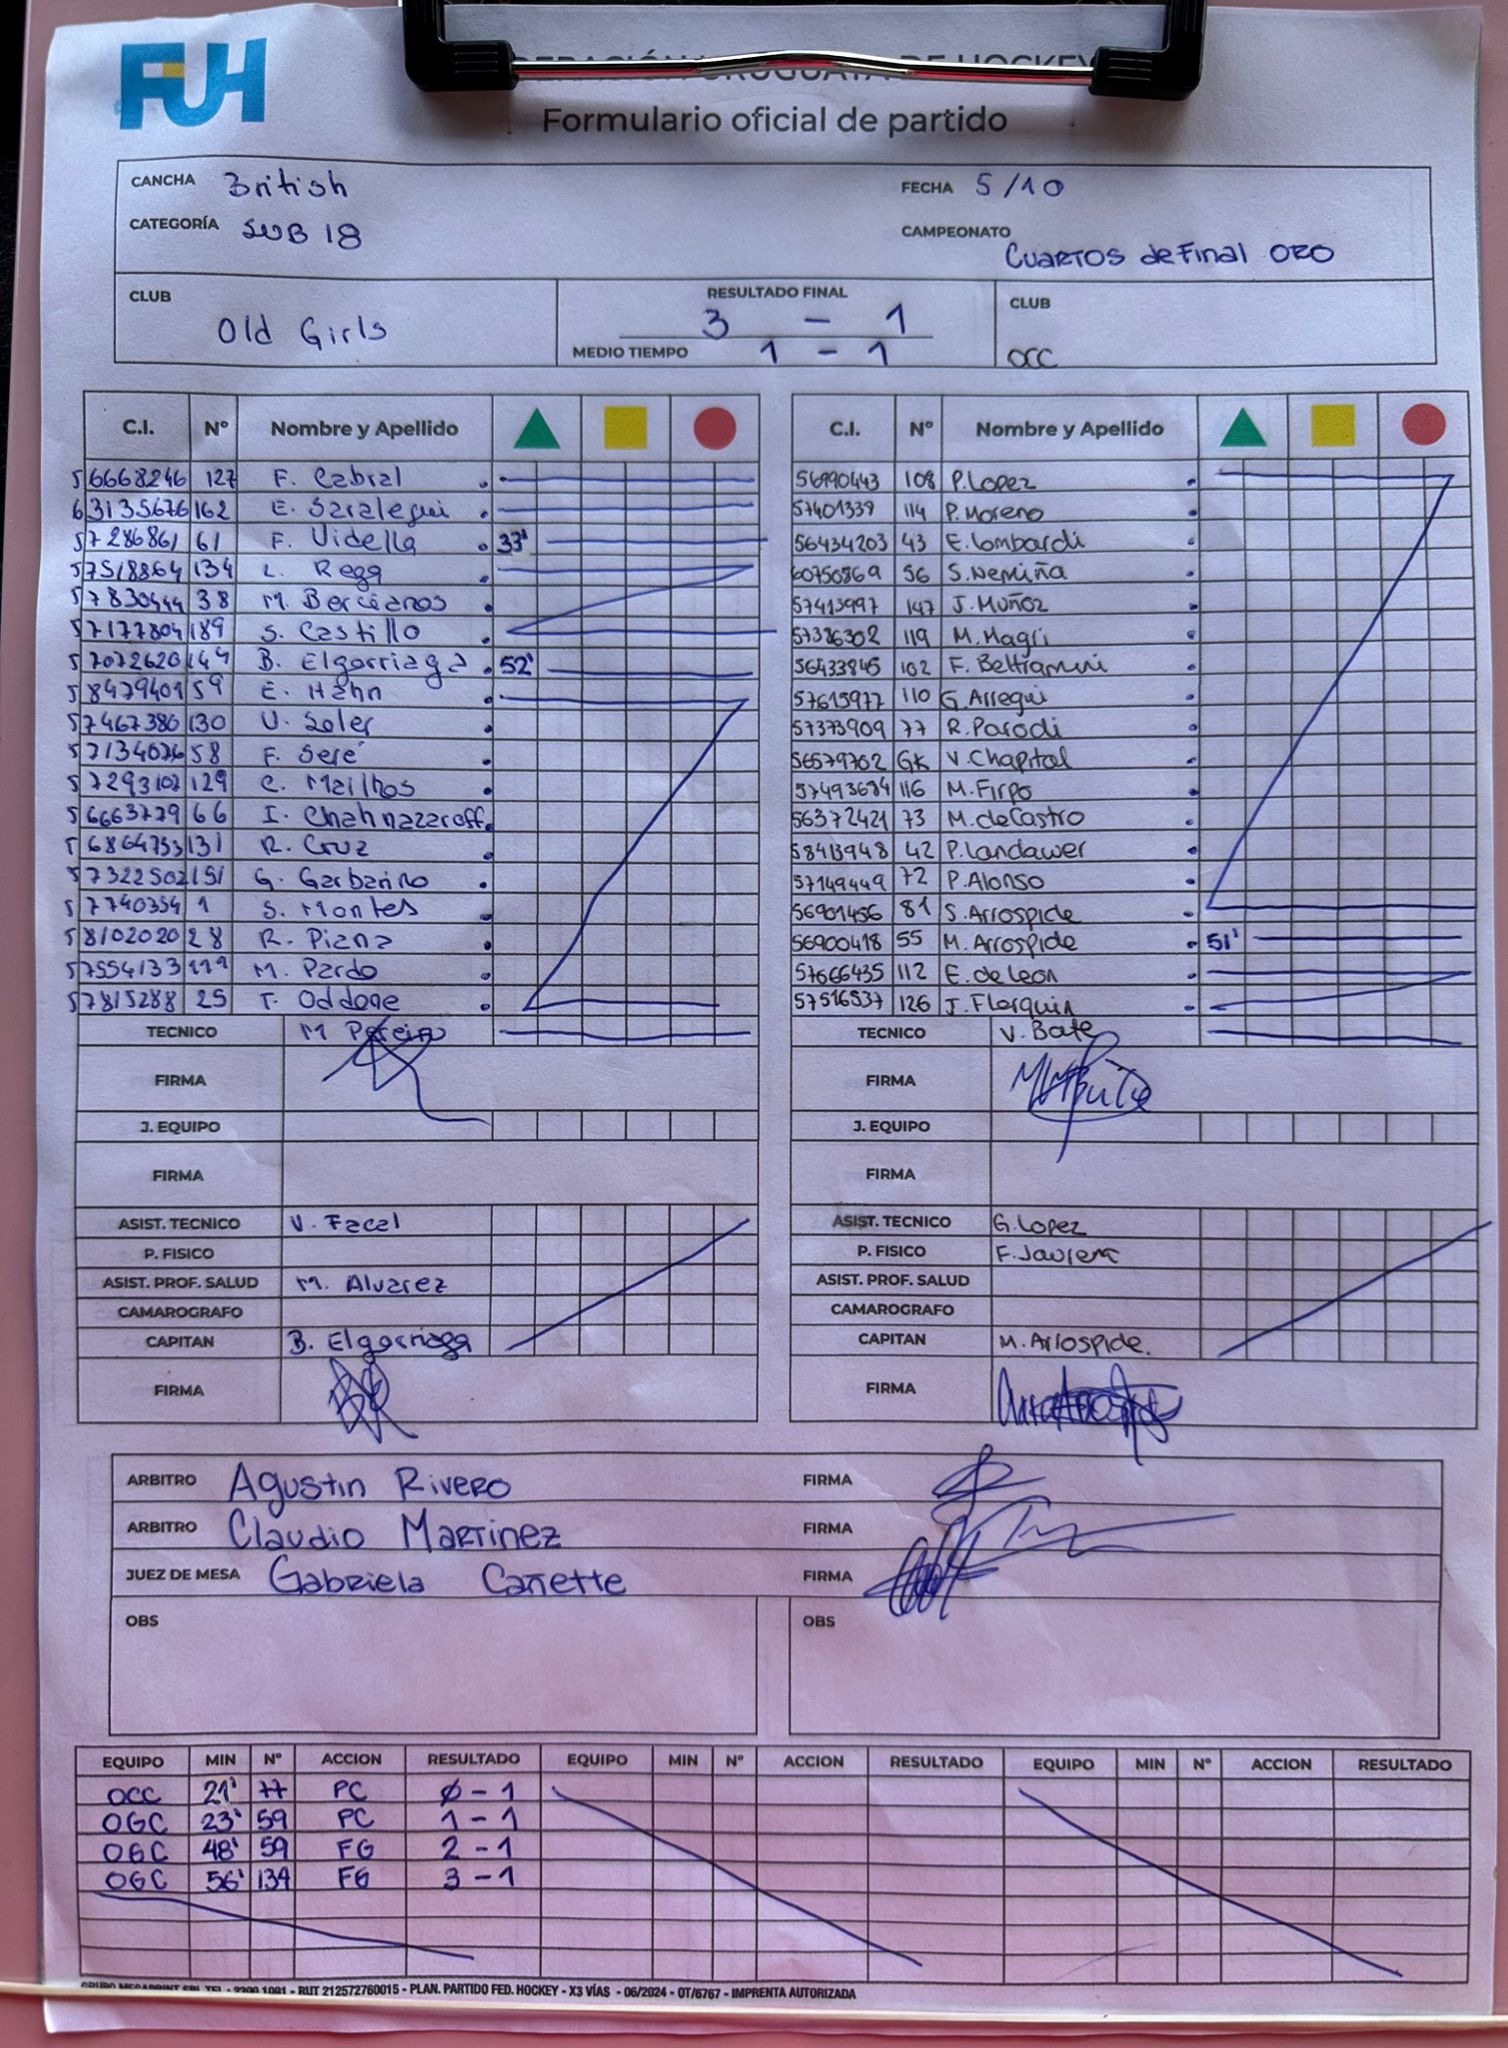 FUH
Formulario oficial de partido
CANCHA British
FECHA 5/10
CATEGORÍA SUB 18
CAMPEONATO Cuartos de Final ORO
CLUB Old Girls
RESULTADO FINAL 3 - 1
MEDIO TIEMPO 1 - 1
CLUB OCC
C.I. Nº Nombre y Apellido
56668246 127 F. Cabral
63135676 162 E. Saralegui
57286861 61 F. Vidella 33'
57518864 134 L. Rega
57830444 38 M. Bercianos
57177804 189 S. Castillo
57072620 149 B. Elgorriaga 52'
58479401 59 E. Hahn
57467380 130 V. Soler
57134026 58 F. Seré
57293102 129 C. Mailhos
56663729 66 I. Chahnazaroff
56864753 131 R. Cruz
57322502 151 G. Garbarino
57740354 1 S. Montes
58102020 28 R. Piana
57554133 119 M. Pardo
57815288 25 T. Oddone
TECNICO M Pereira
FIRMA
J. EQUIPO
FIRMA
ASIST. TECNICO V. Facal
P. FISICO
ASIST. PROF. SALUD M. Alvarez
CAMAROGRAFO
CAPITAN B. Elgorriaga
FIRMA
C.I. Nº Nombre y Apellido
56990443 108 P. Lopez
57401339 114 P. Moreno
56434203 43 E. Lombardi
60750869 56 S. Nemiña
57413997 147 J. Muñoz
57386302 119 M. Magri
56433845 102 F. Beltramini
57615977 110 G. Arregui
57373909 77 R. Parodi
56579702 GK V. Chapital
57493684 116 M. Firpo
56372421 73 M. de Castro
58413948 42 P. Landawer
57149449 72 P. Alonso
56901456 81 S. Arrospide
56900418 55 M. Arrospide 51'
57666435 112 E. de Leon
57516537 126 J. Florquin
TECNICO V. Bate
FIRMA
J. EQUIPO
FIRMA
ASIST. TECNICO G. Lopez
P. FISICO F. Javiera
ASIST. PROF. SALUD
CAMAROGRAFO
CAPITAN M. Arrospide.
FIRMA
ARBITRO Agustin Rivero FIRMA
ARBITRO Claudio Martinez FIRMA
JUEZ DE MESA Gabriela Cañette FIRMA
OBS OBS
EQUIPO MIN Nº ACCION RESULTADO EQUIPO MIN Nº ACCION RESULTADO EQUIPO MIN Nº ACCION RESULTADO
OCC 21' 77 PC 0 - 1
OGC 23' 59 PC 1 - 1
OGC 48' 59 FG 2 - 1
OGC 56' 134 FG 3 - 1
RUT 212572760015 - PLAN. PARTIDO FED. HOCKEY - X3 VÍAS - 06/2024 - OT/6767 - IMPRENTA AUTORIZADA